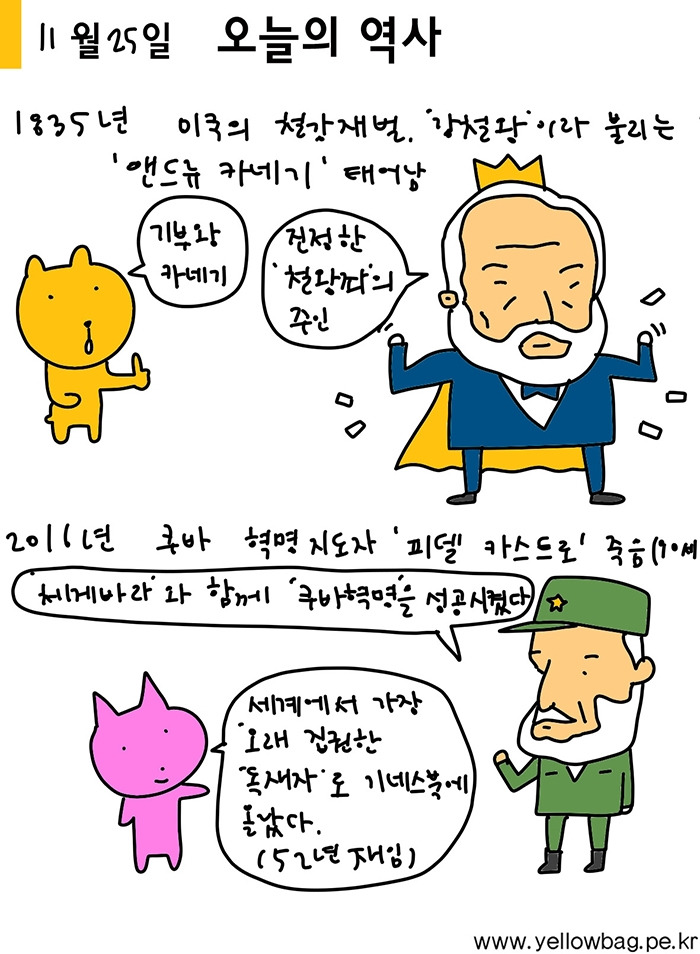 11월25일 오늘의 역사
1835년 미국의 철강재벌. '강철왕'이라 불리는
'앤드류 카네기' 태어남
기부왕
카네기
진정한
'철왕좌'의
주인
2016년 쿠바 혁명지도자 '피델 카스트로' 죽음(90세
'체게바라'와 함께 '쿠바혁명'을 성공시켰다
세계에서 가장
오래 집권한
'독재자'로 기네스북에
올랐다.
(52년 재임)
www.yellowbag.pe.kr